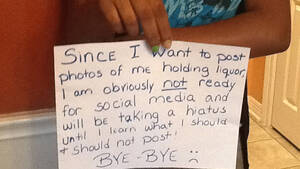 SINCE I want to post
photos of me holding liquor,
I am obviously not ready
for social media and
will be taking a hiatus
until I learn what I should
+ should not post!
BYE-BYE :(